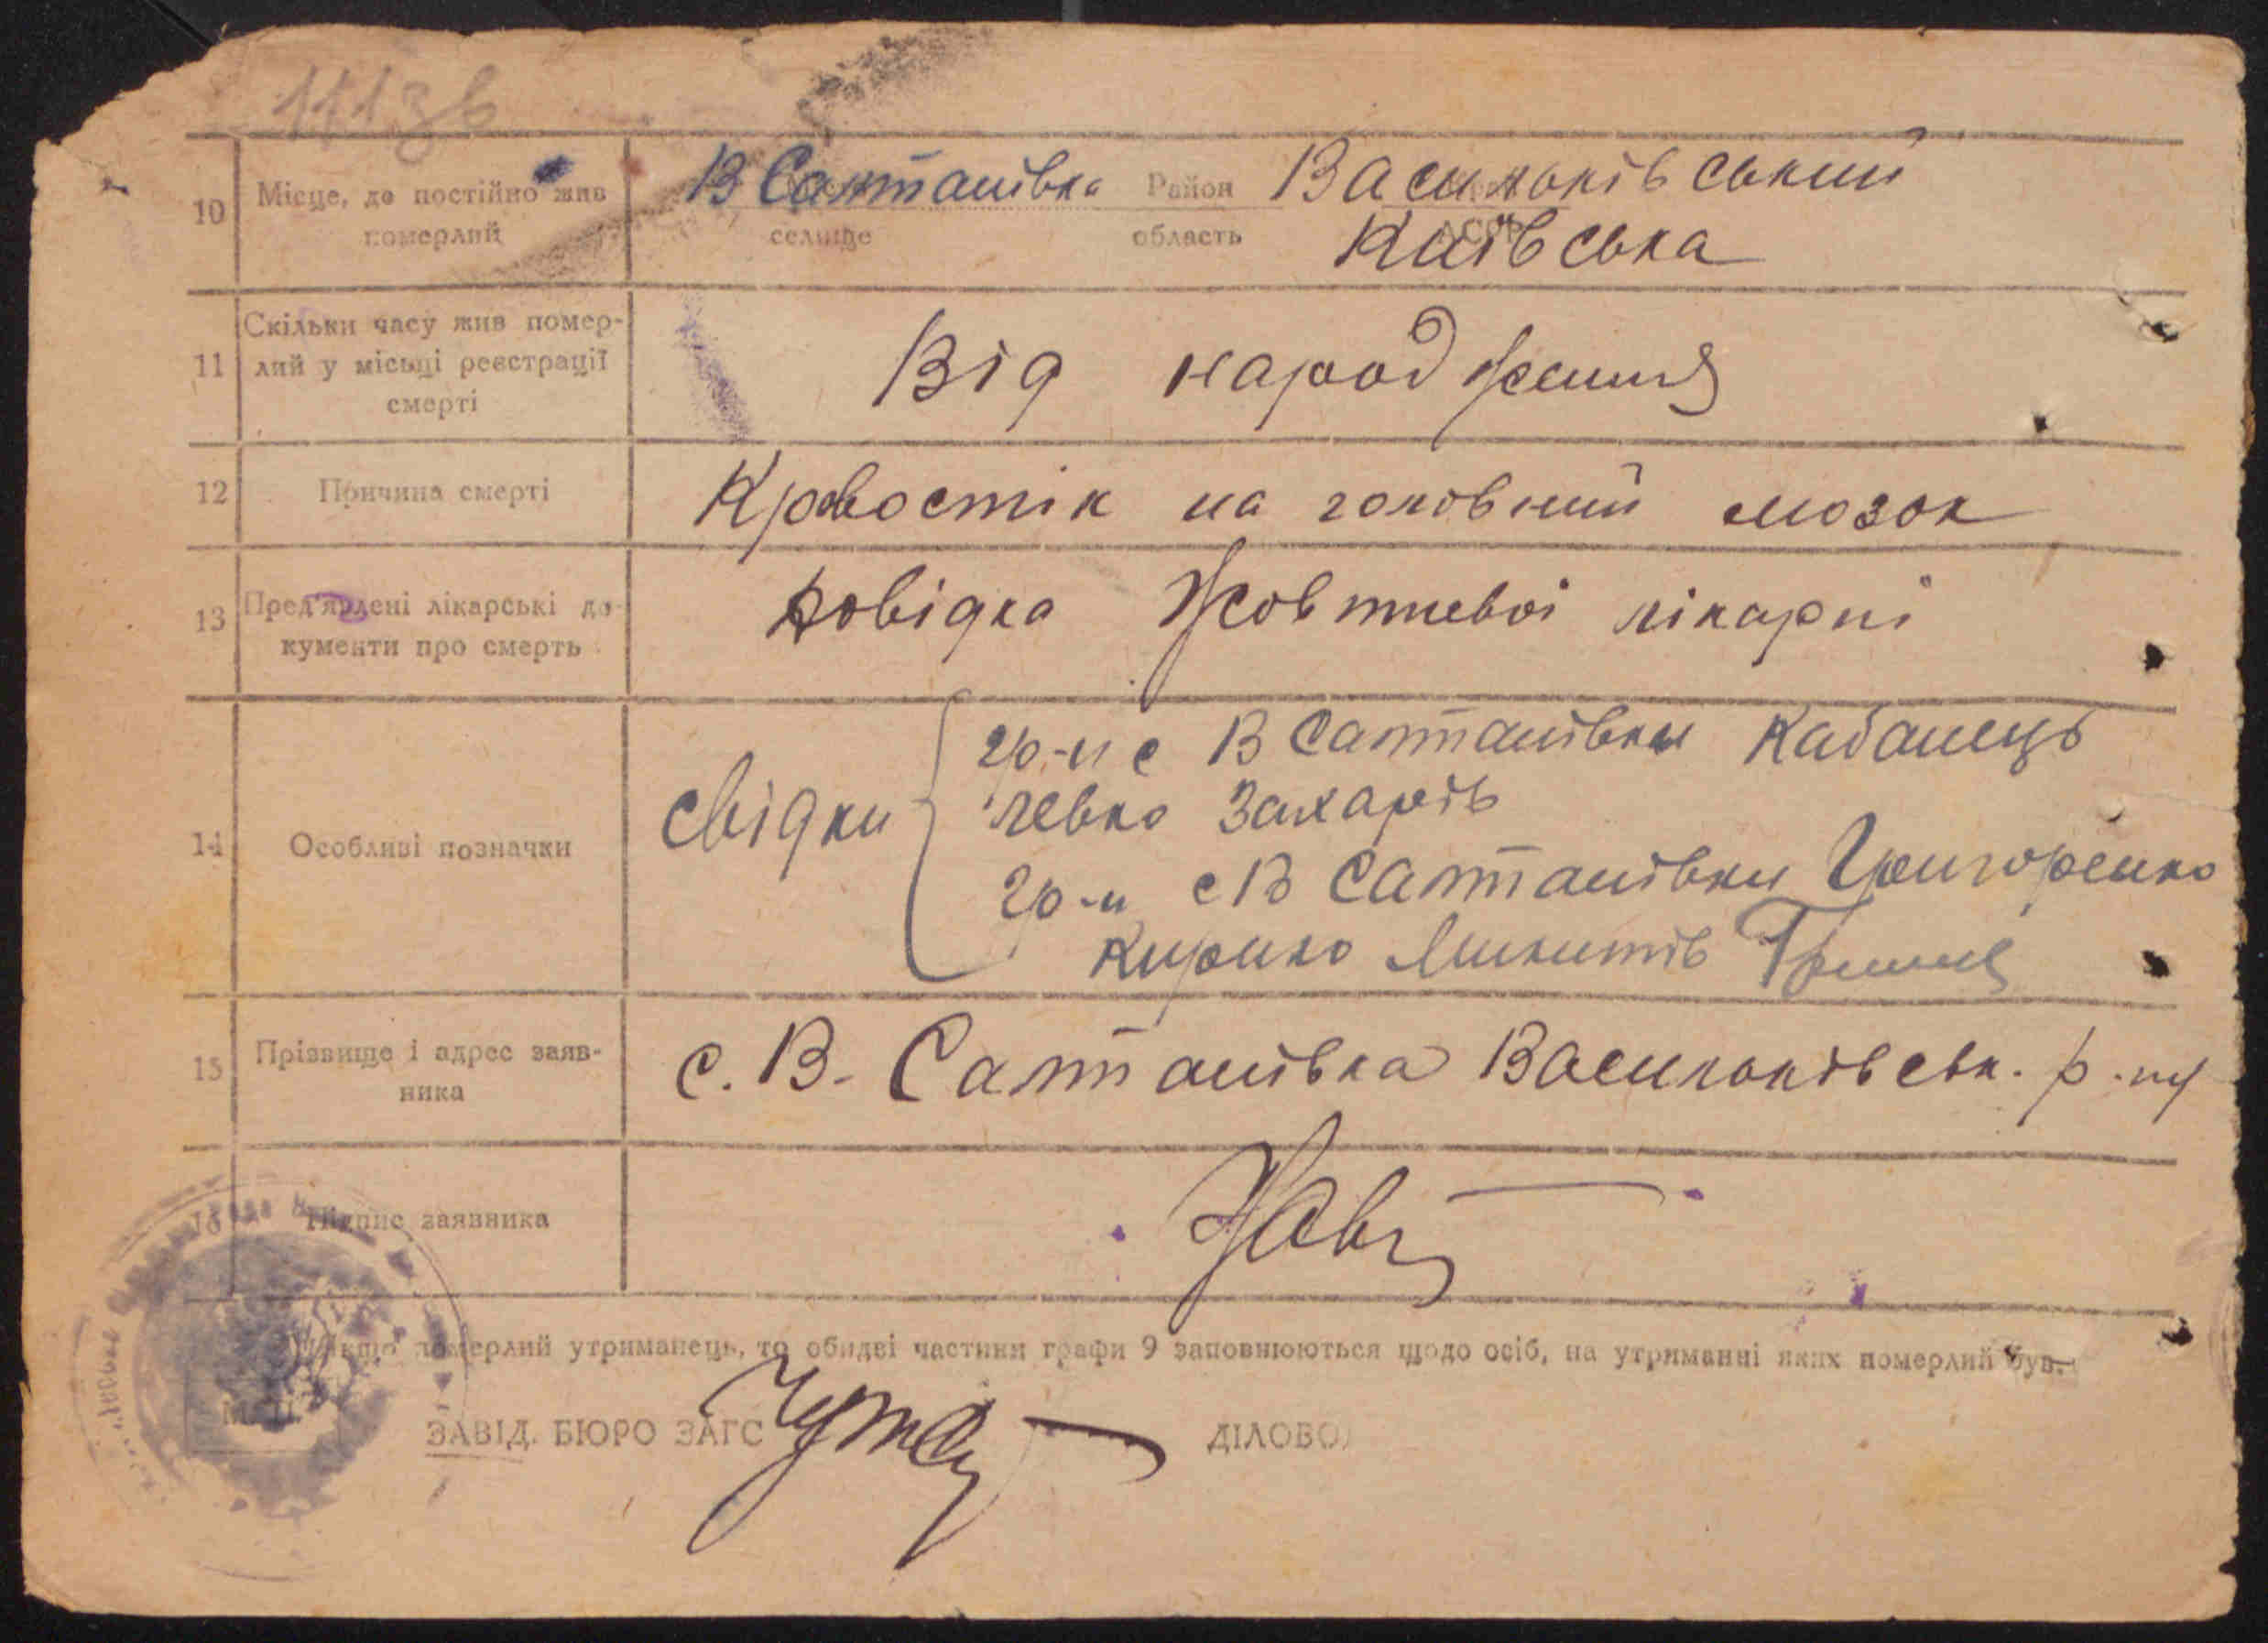 10 Місце, де постійно жив В Салтанівка Район Васильківський
померлий селище область АСОР Київська
Скільки часу жив помер-
11 лий у місьці реєстрації Від народження
смерті
12 Причина смерті Кровостік на головний мозок
13 Пред'явлені лікарські до- довідка Жовтневоі лікарні
кументи про смерть
гр-н с В Салтанівки Кабанець
14 Особливі позначки свідки Левко Захарів
гр-н с В Салтанівки Григоренко
Кирило Микитів
15 Прізвище і адрес заяв- с. В. Салтанівка Васильківськ. р-ну
ника
16 Підпис заявника
Якщо померлий утриманець, то обидві частини графи 9 заповнюються щодо осіб, на утриманні яких померлий був.
ЗАВІД. БЮРО ЗАГС ДІЛОВОД